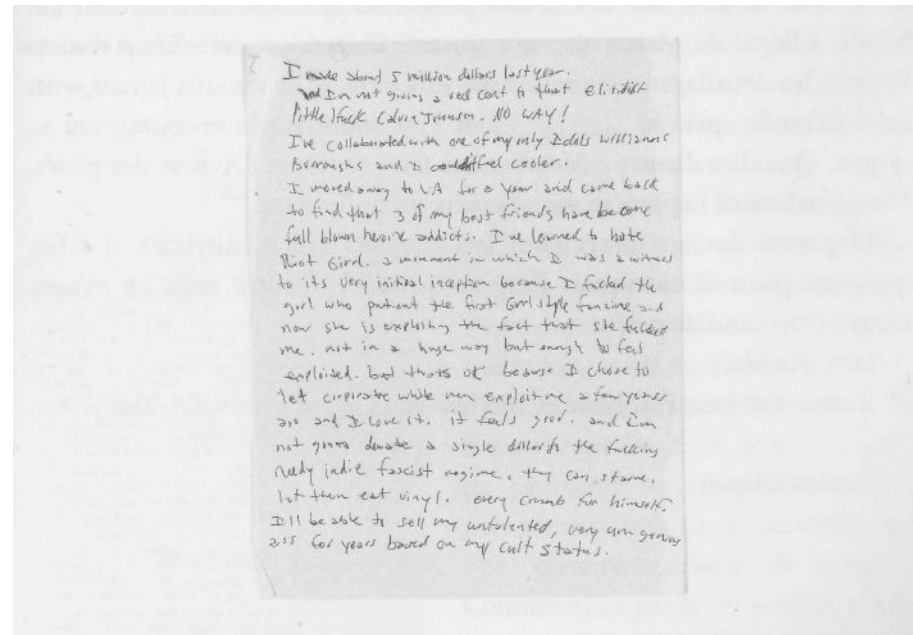 I made about 5 million dollars last year.
and I'm not giving a red cent to that elitist
little fuck Calvin Johnson. NO WAY!
I've collaborated with one of my only Idols William
Burroughs and I couldnt feel cooler.
I moved away to LA for a year and came back
to find that 3 of my best friends have become
full blown heroine addicts. I've learned to hate
Riot Grrrl. a movement in which I was a witness
to its very initial inception because I fucked the
girl who put out the first Grrrl style fanzine and
now she is exploiting the fact that she fucked
me. not in a huge way but enough to feel
exploited. but thats ok because I chose to
let corporate white men exploit me a few years
ago and I love it. it feels good. and im
not gonna donate a single dollar to the fucking
needy indie fascist regime. they can starve.
let them eat vinyl. every crumb for himself.
I'll be able to sell my untalented, very un genius
ass for years based on my cult status.